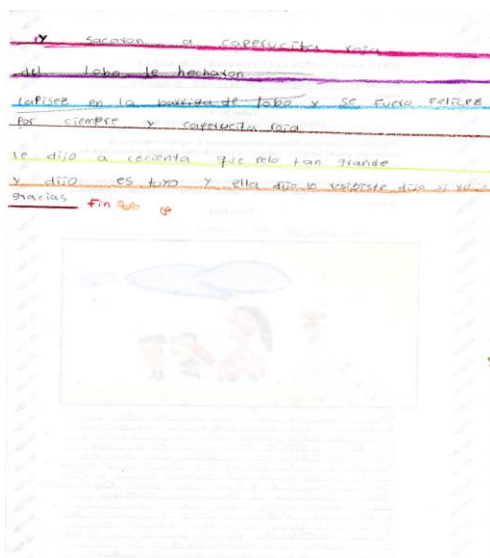 Y sacaron a caperucita roja
del lobo le hecharon
lapisez en la barriga de lobo y se fuero felizez
Por ciempre y caperucita roja
le dijo a cecienta que relo tan grande
y dijo es tuyo y ella dijo lo resibiste dijo si
gracias Fin